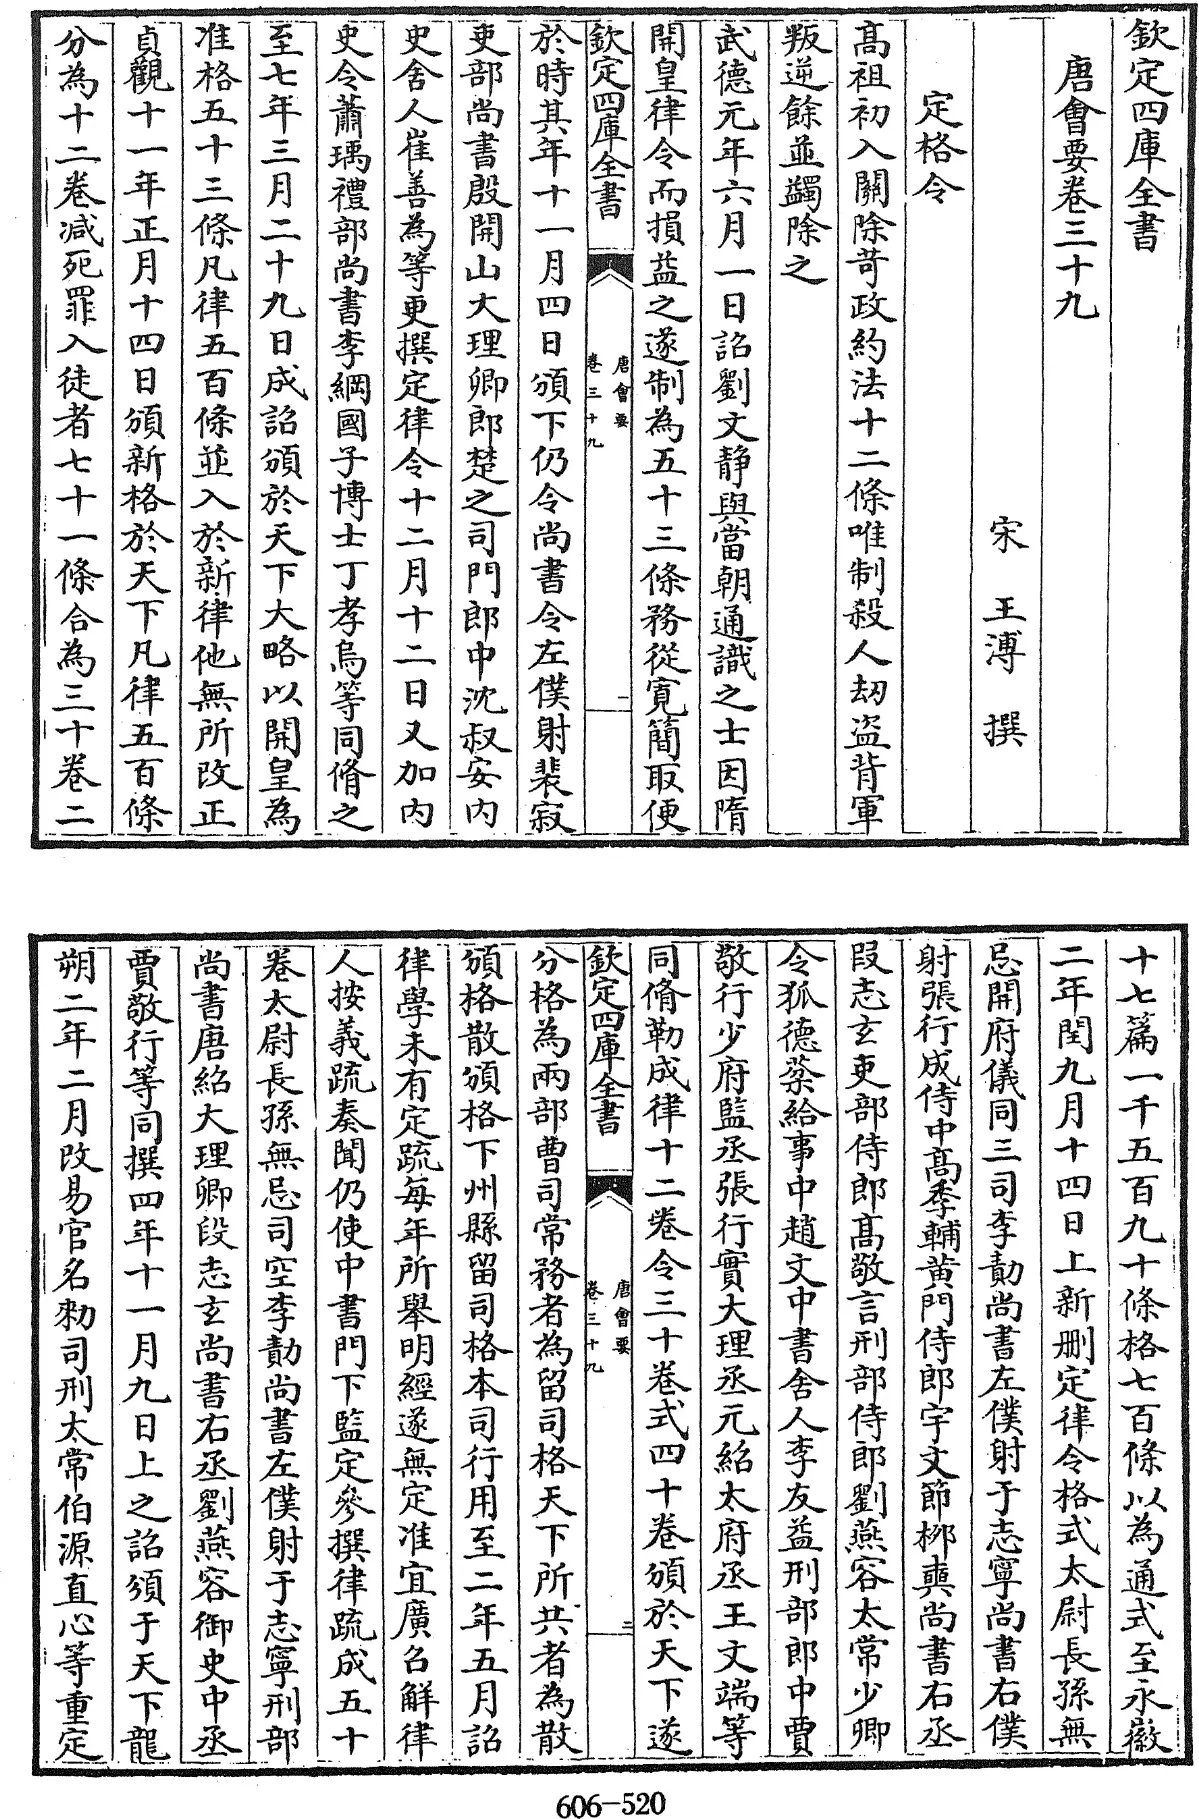 欽定四庫全書
唐會要卷三十九
宋 王溥 撰
定格令
高祖初入關除苛政約法十二條唯制殺人劫盗背軍
叛逆餘並蠲除之
武德元年六月一日詔劉文静與當朝通識之士因隋
開皇律令而損益之遂制為五十三條務從寛簡取便
欽定四庫全書
唐會要
卷三十九
一
於時其年十一月四日頒下仍令尚書令左僕射裴寂
吏部尚書殷開山大理卿郎楚之司門郎中沈叔安内
史舍人崔善為等更撰定律令十二月十二日又加内
史令蕭瑀禮部尚書李綱國子博士丁孝烏等同脩之
至七年三月二十九日成詔頒於天下大略以開皇為
准格五十三條凡律五百條並入於新律他無所改正
貞觀十一年正月十四日頒新格於天下凡律五百條
分為十二卷减死罪入徒者七十一條合為三十卷二
十七篇一千五百九十條格七百條以為通式至永徽
二年閏九月十四日上新删定律令格式太尉長孫無
忌開府儀同三司李勣尚書左僕射于志寧尚書右僕
射張行成侍中髙季輔黄門侍郎宇文節栁奭尚書右丞
段志玄吏部侍郎髙敬言刑部侍郎劉燕容太常少卿
令狐德棻給事中趙文中書舍人李友益刑部郎中賈
敬行少府監丞張行實大理丞元紹太府丞王文端等
同脩勒成律十二卷令三十卷式四十卷頒於天下遂
欽定四庫全書
唐會要
卷三十九
二
分格為兩部曹司常務者為留司格天下所共者為散
頒格散頒格下州縣留司格本司行用至二年五月詔
律學未有定疏每年所舉明經遂無定准宜廣召解律
人按義疏奏聞仍使中書門下監定參撰律疏成五十
卷太尉長孫無忌司空李勣尚書左僕射于志寧刑部
尚書唐紹大理卿段志玄尚書右丞劉燕容御史中丞
賈敬行等同撰四年十一月九日上之詔頒于天下龍
朔二年二月改易官名勑司刑太常伯源直心等重定
606-520